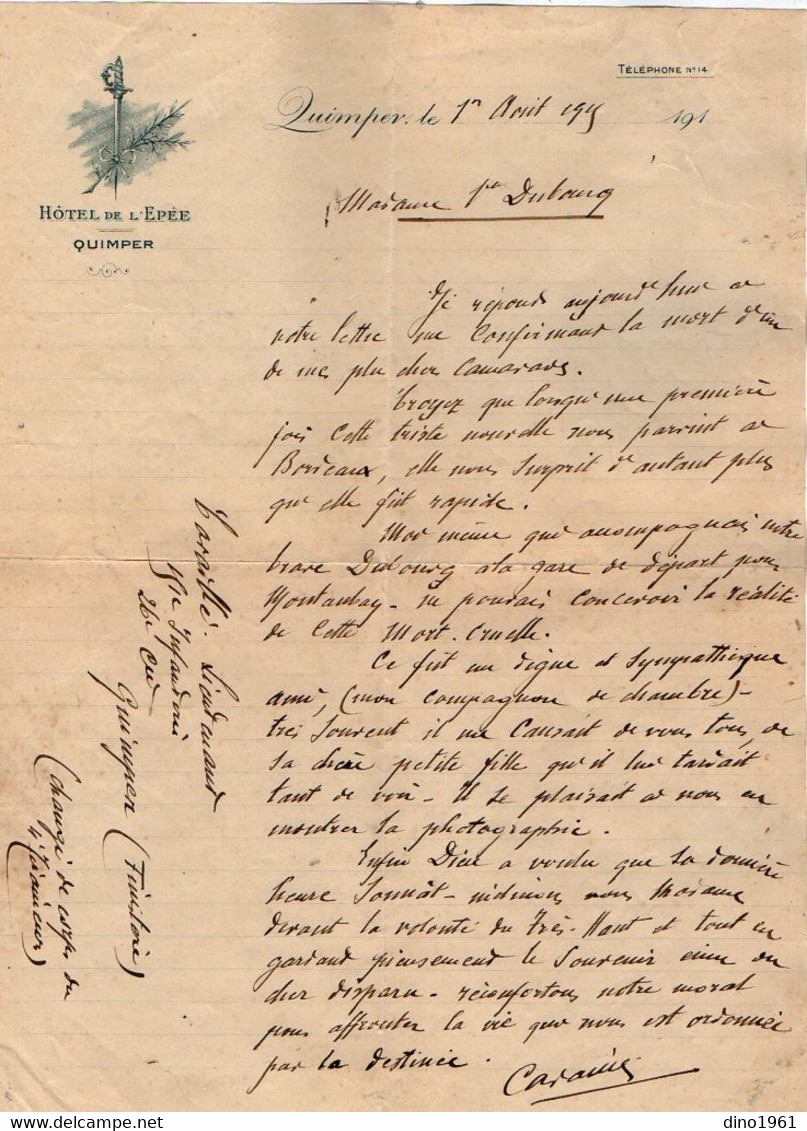 TÉLÉPHONE Nº 14
Quimper, le 1er Août 1915 191
HÔTEL DE L'EPÉE
QUIMPER
Madame Dubourg
Je réponds aujourd'hui a
votre lettre me confirmant la mort d'un
de mes plus chers camarades.
Croyez que lorsqu'une première
fois cette triste nouvelle nous parvint a
Bordeaux, elle nous surprit d'autant plus
qu'elle fut rapide.
Moi même que accompagnais notre
brave Dubourg à la gare de départ pour
Montauban - ne pouvais concevoir la réalité
de cette mort cruelle.
Ce fut un digne et sympathique
ami, (mon compagnon de chambre) -
très souvent il me causait de vous tous, de
sa chère petite fille qu'il lui tardait
tant de voir - Il se plaisait a nous en
montrer la photographie.
Enfin Dieu a voulu que sa dernière
heure sonnât - inclinons nous Madame
devant la volonté du Très-Haut et tout en
gardant pieusement le souvenir ému du
cher disparu - réconfortons notre moral
pour affronter la vie que nous est ordonnée
par la destinée.
Lieutenant
Infanterie
28e Cie
Quimper (Finistère)
(changé de corps du